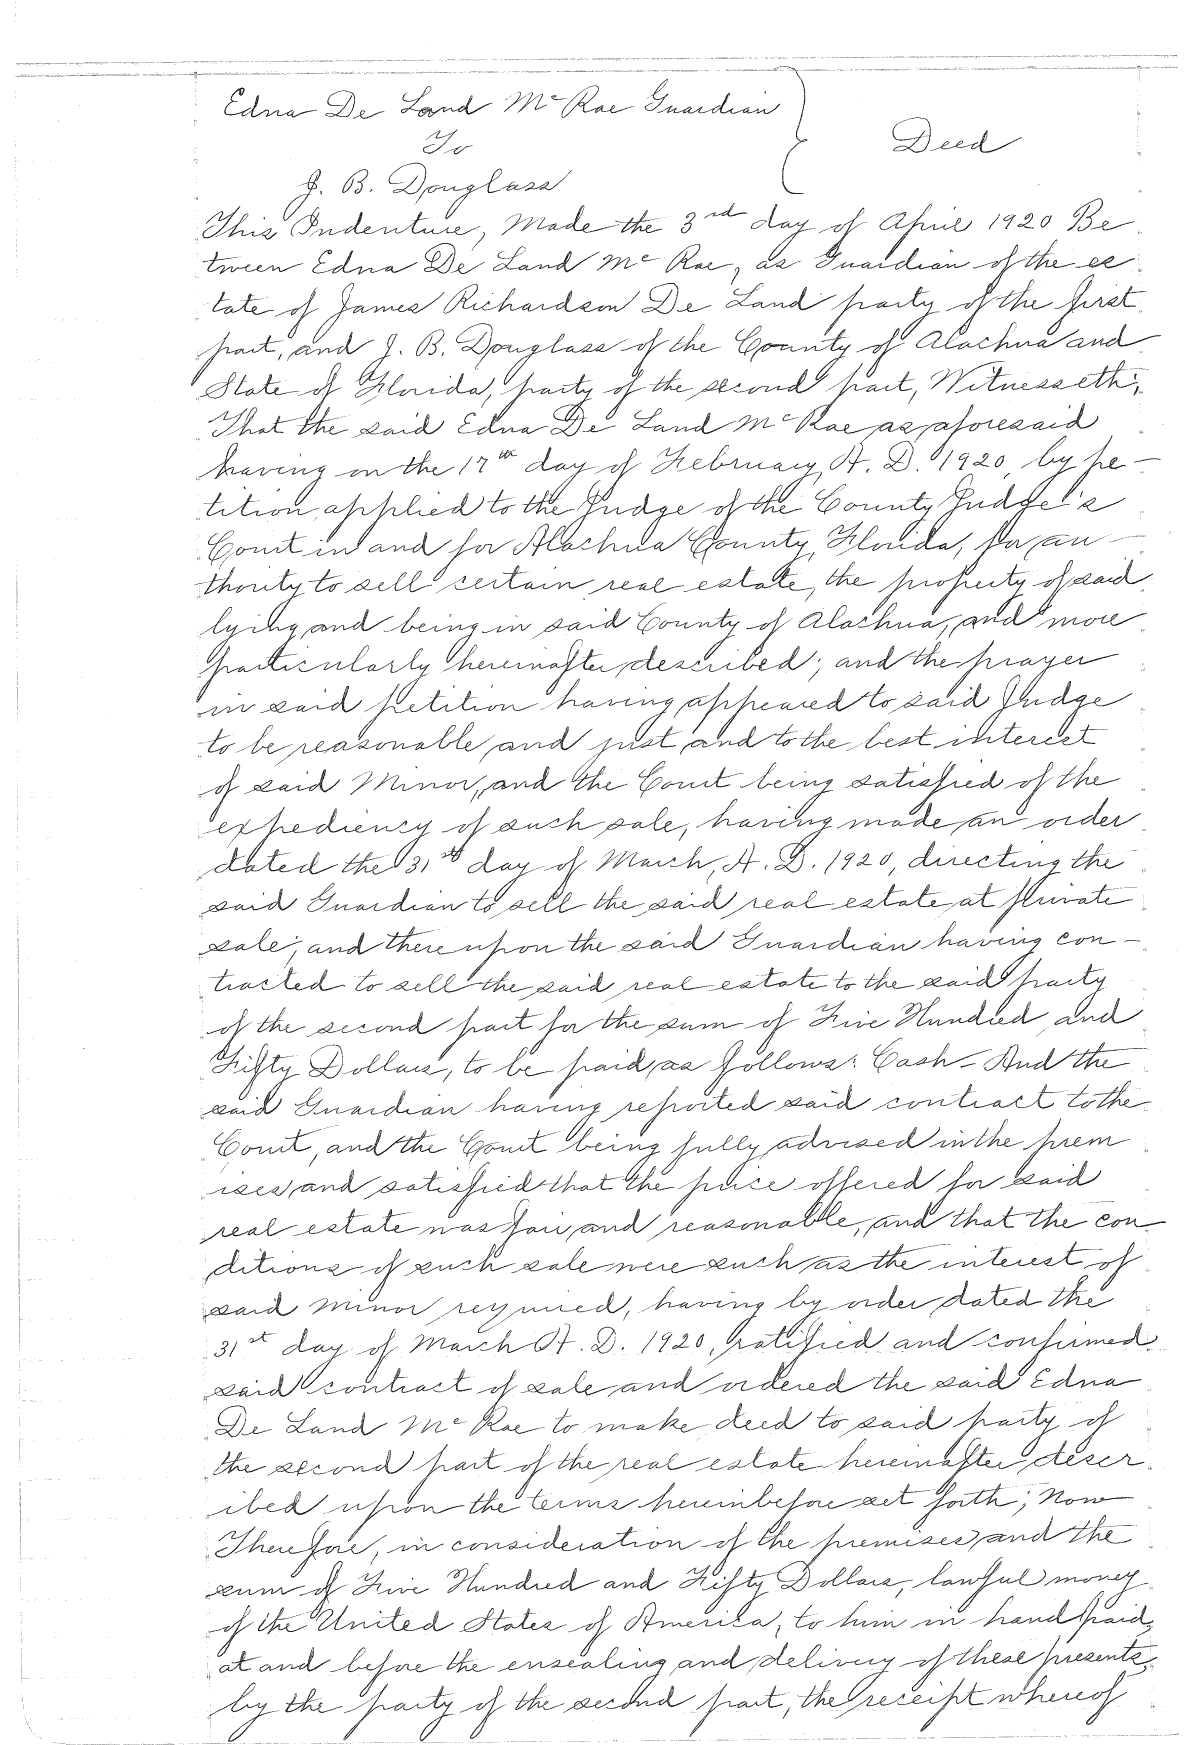 Edna De Land Mc Rae Guardian
To
Deed
J. B. Douglass
This Indenture, Made the 3rd day of April 1920 Be
tween Edna De Land Mc Rae, as Guardian of the es
tate of James Richardson De Land party of the first
part, and J. B. Douglass of the County of Alachua and
State of Florida, party of the second part, Witnesseth;
That the said Edna De Land Mc Rae as aforesaid
having on the 17th day of February, A. D. 1920, by pe-
tition applied to the Judge of the County Judge's
Court in and for Alachua County, Florida, for au-
thority to sell certain real estate, the property of said
lying and being in said County of Alachua, and more
particularly hereinafter described; and the prayer
in said petition having appeared to said Judge
to be reasonable and just and to the best interest
of said Minor, and the Court being satisfied of the
expediency of such sale, having made an order
dated the 31st day of March, A. D. 1920, directing the
said Guardian to sell the said real estate at private
sale; and there upon the said Guardian having con-
tracted to sell the said real estate to the said party
of the second part for the sum of Five Hundred and
Fifty Dollars, to be paid as follows: Cash - And the
said Guardian having reported said contract to the
Court, and the Court being fully advised in the prem
ises and satisfied that the price offered for said
real estate was fair and reasonable, and that the con
ditions of such sale were such as the interest of
said minor required, having by order dated the
31st day of March A. D. 1920, ratified and confirmed
said contract of sale and ordered the said Edna
De Land Mc Rae to make deed to said party of
the second part of the real estate hereinafter descr
ibed upon the terms hereinbefore set forth; Now
Therefore, in consideration of the premises and the
sum of Five Hundred and Fifty Dollars, lawful money
of the United States of America, to him in hand paid,
at and before the ensealing and delivery of these presents,
by the party of the second part, the receipt whereof